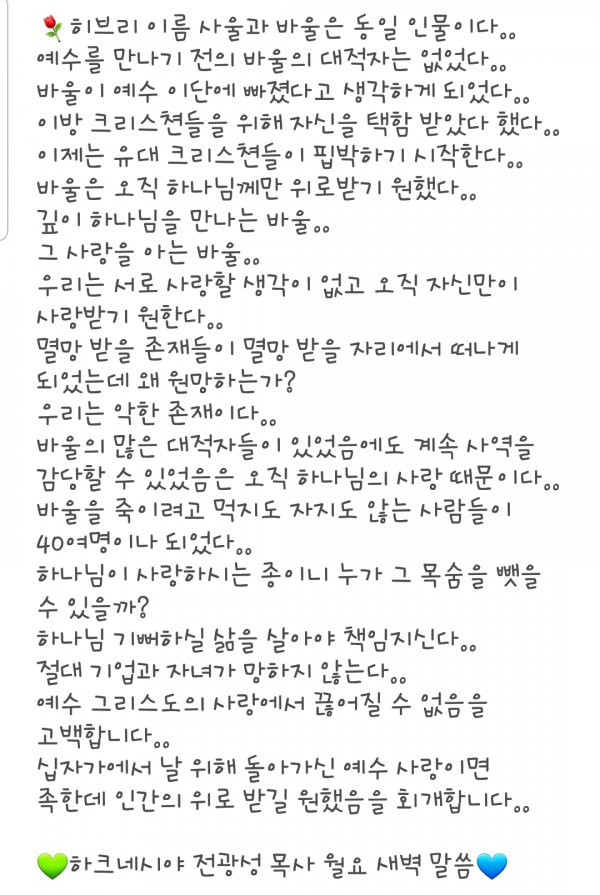 🌹히브리 이름 사울과 바울은 동일 인물이다。。
예수를 만나기 전의 바울의 대적자는 없었다。。
바울이 예수 이단에 빠졌다고 생각하게 되었다。。
이방 크리스쳔들을 위해 자신을 택함 받았다 했다。。
이제는 유대 크리스쳔들이 핍박하기 시작한다。。
바울은 오직 하나님께만 위로받기 원했다。。
깊이 하나님을 만나는 바울。。
그 사랑을 아는 바울。。
우리는 서로 사랑할 생각이 없고 오직 자신만이
사랑받기 원한다。。
멸망 받을 존재들이 멸망 받을 자리에서 떠나게
되었는데 왜 원망하는가?
우리는 악한 존재이다。。
바울의 많은 대적자들이 있었음에도 계속 사역을
감당할 수 있었음은 오직 하나님의 사랑 때문이다。。
바울을 죽이려고 먹지도 자지도 않는 사람들이
40여명이나 되었다。。
하나님이 사랑하시는 종이니 누가 그 목숨을 뺏을
수 있을까?
하나님 기뻐하실 삶을 살아야 책임지신다。。
절대 기업과 자녀가 망하지 않는다。。
예수 그리스도의 사랑에서 끊어질 수 없음을
고백합니다。。
십자가에서 날 위해 돌아가신 예수 사랑이면
족한데 인간의 위로 받길 원했음을 회개합니다。。
💚하크네시야 전광성 목사 월요 새벽 말씀💙